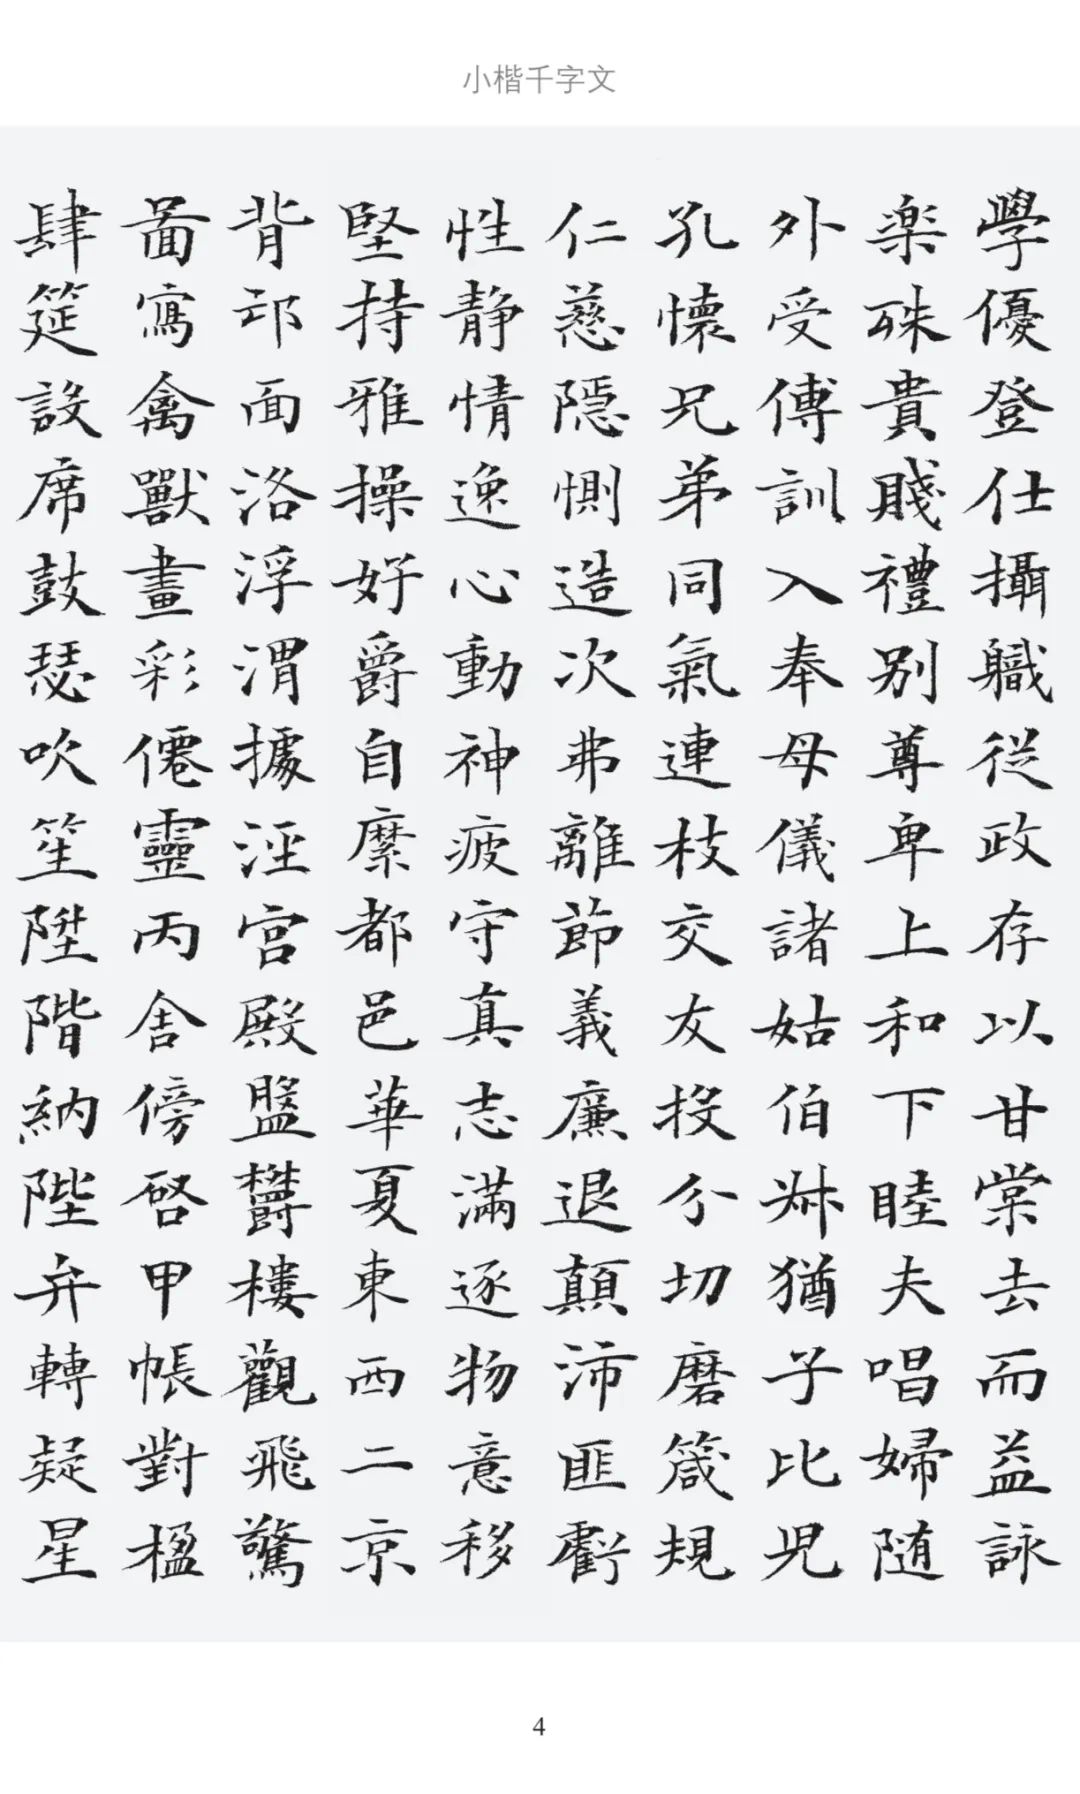 小楷千字文
學優登仕攝職從政存以甘棠去而益詠
楽殊貴賤禮別尊卑上和下睦夫唱婦随
外受傅訓入奉母儀諸姑伯叔猶子比児
孔懷兄弟同氣連枝交友投分切磨箴規
仁慈隱惻造次弗離節義廉退顛沛匪虧
性静情逸心動神疲守真志滿逐物意移
堅持雅操好爵自縻都邑華夏東西二京
背邙面洛浮渭據涇宮殿盤鬱樓觀飛驚
啚寫禽獸畫彩僊靈丙舎傍啓甲帳對楹
肆筵設席鼓瑟吹笙陞階納陛弁轉疑星
4